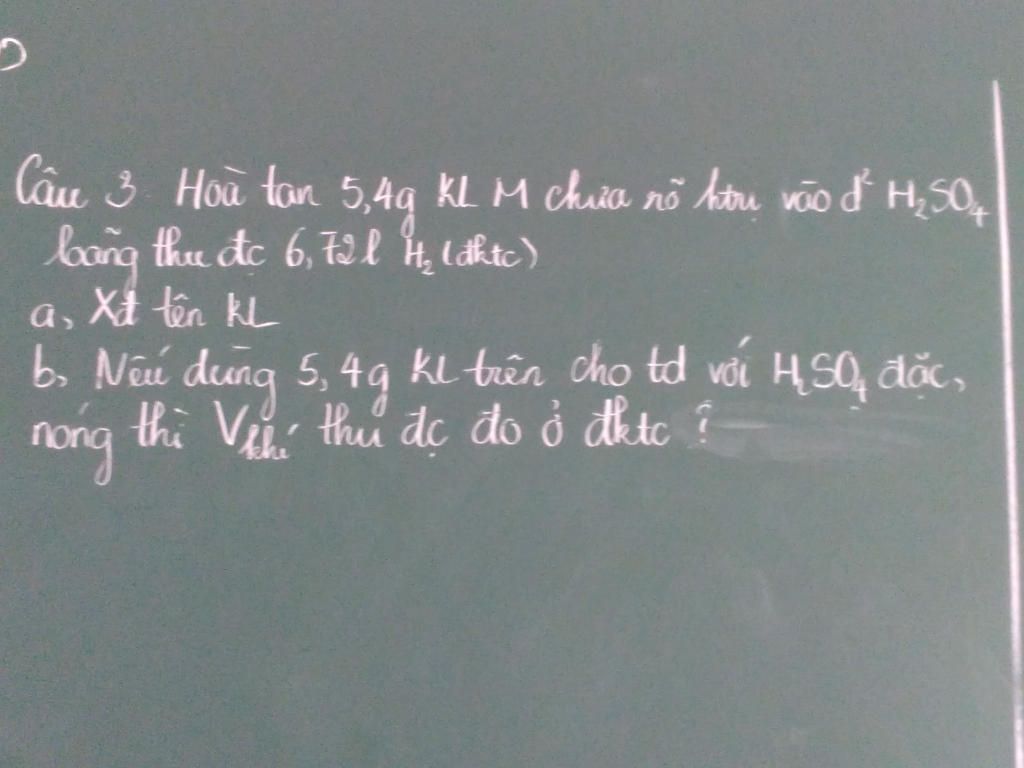 Câu 3 Hoà tan 5,4g KL M chưa rõ htrị vào d² H₂SO₄
loãng thu đc 6,72l H₂ (đktc)
a, Xđ tên KL
b, Nếu dùng 5,4g KL trên cho td với H₂SO₄ đặc,
nóng thì Vkhí thu đc đo ở đktc ?